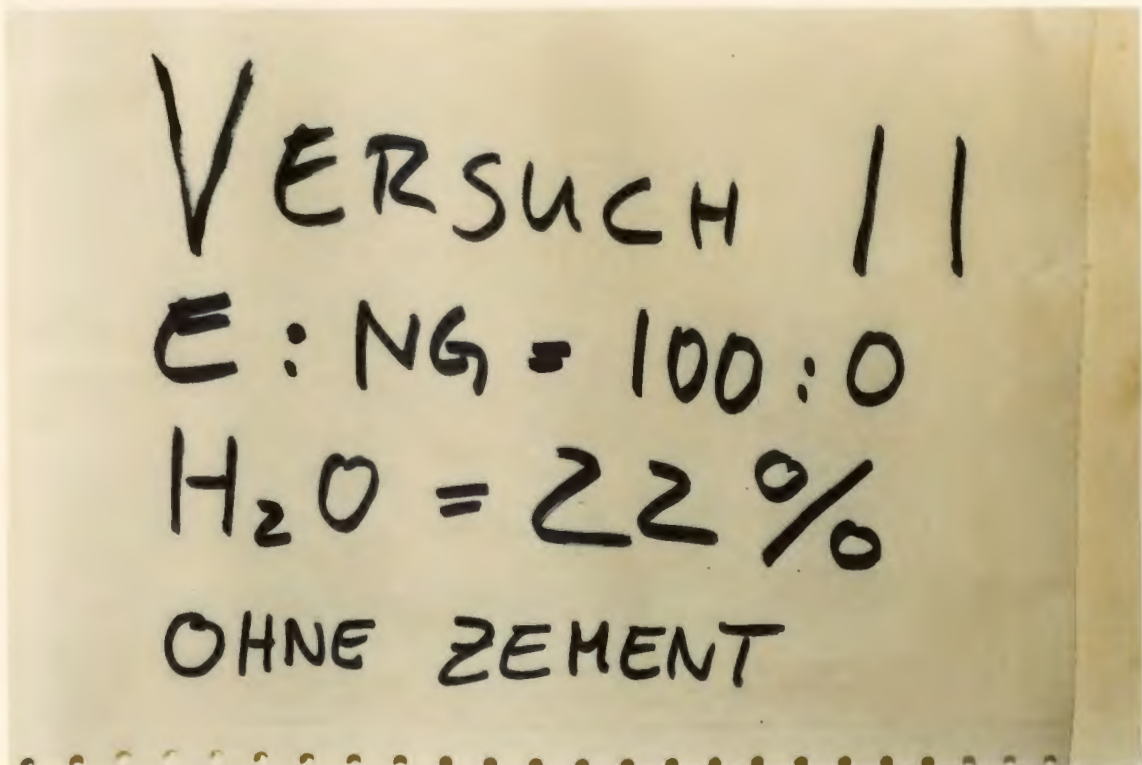 VERSUCH 11
E : NG = 100 : 0
H₂O = 22%
OHNE ZEMENT